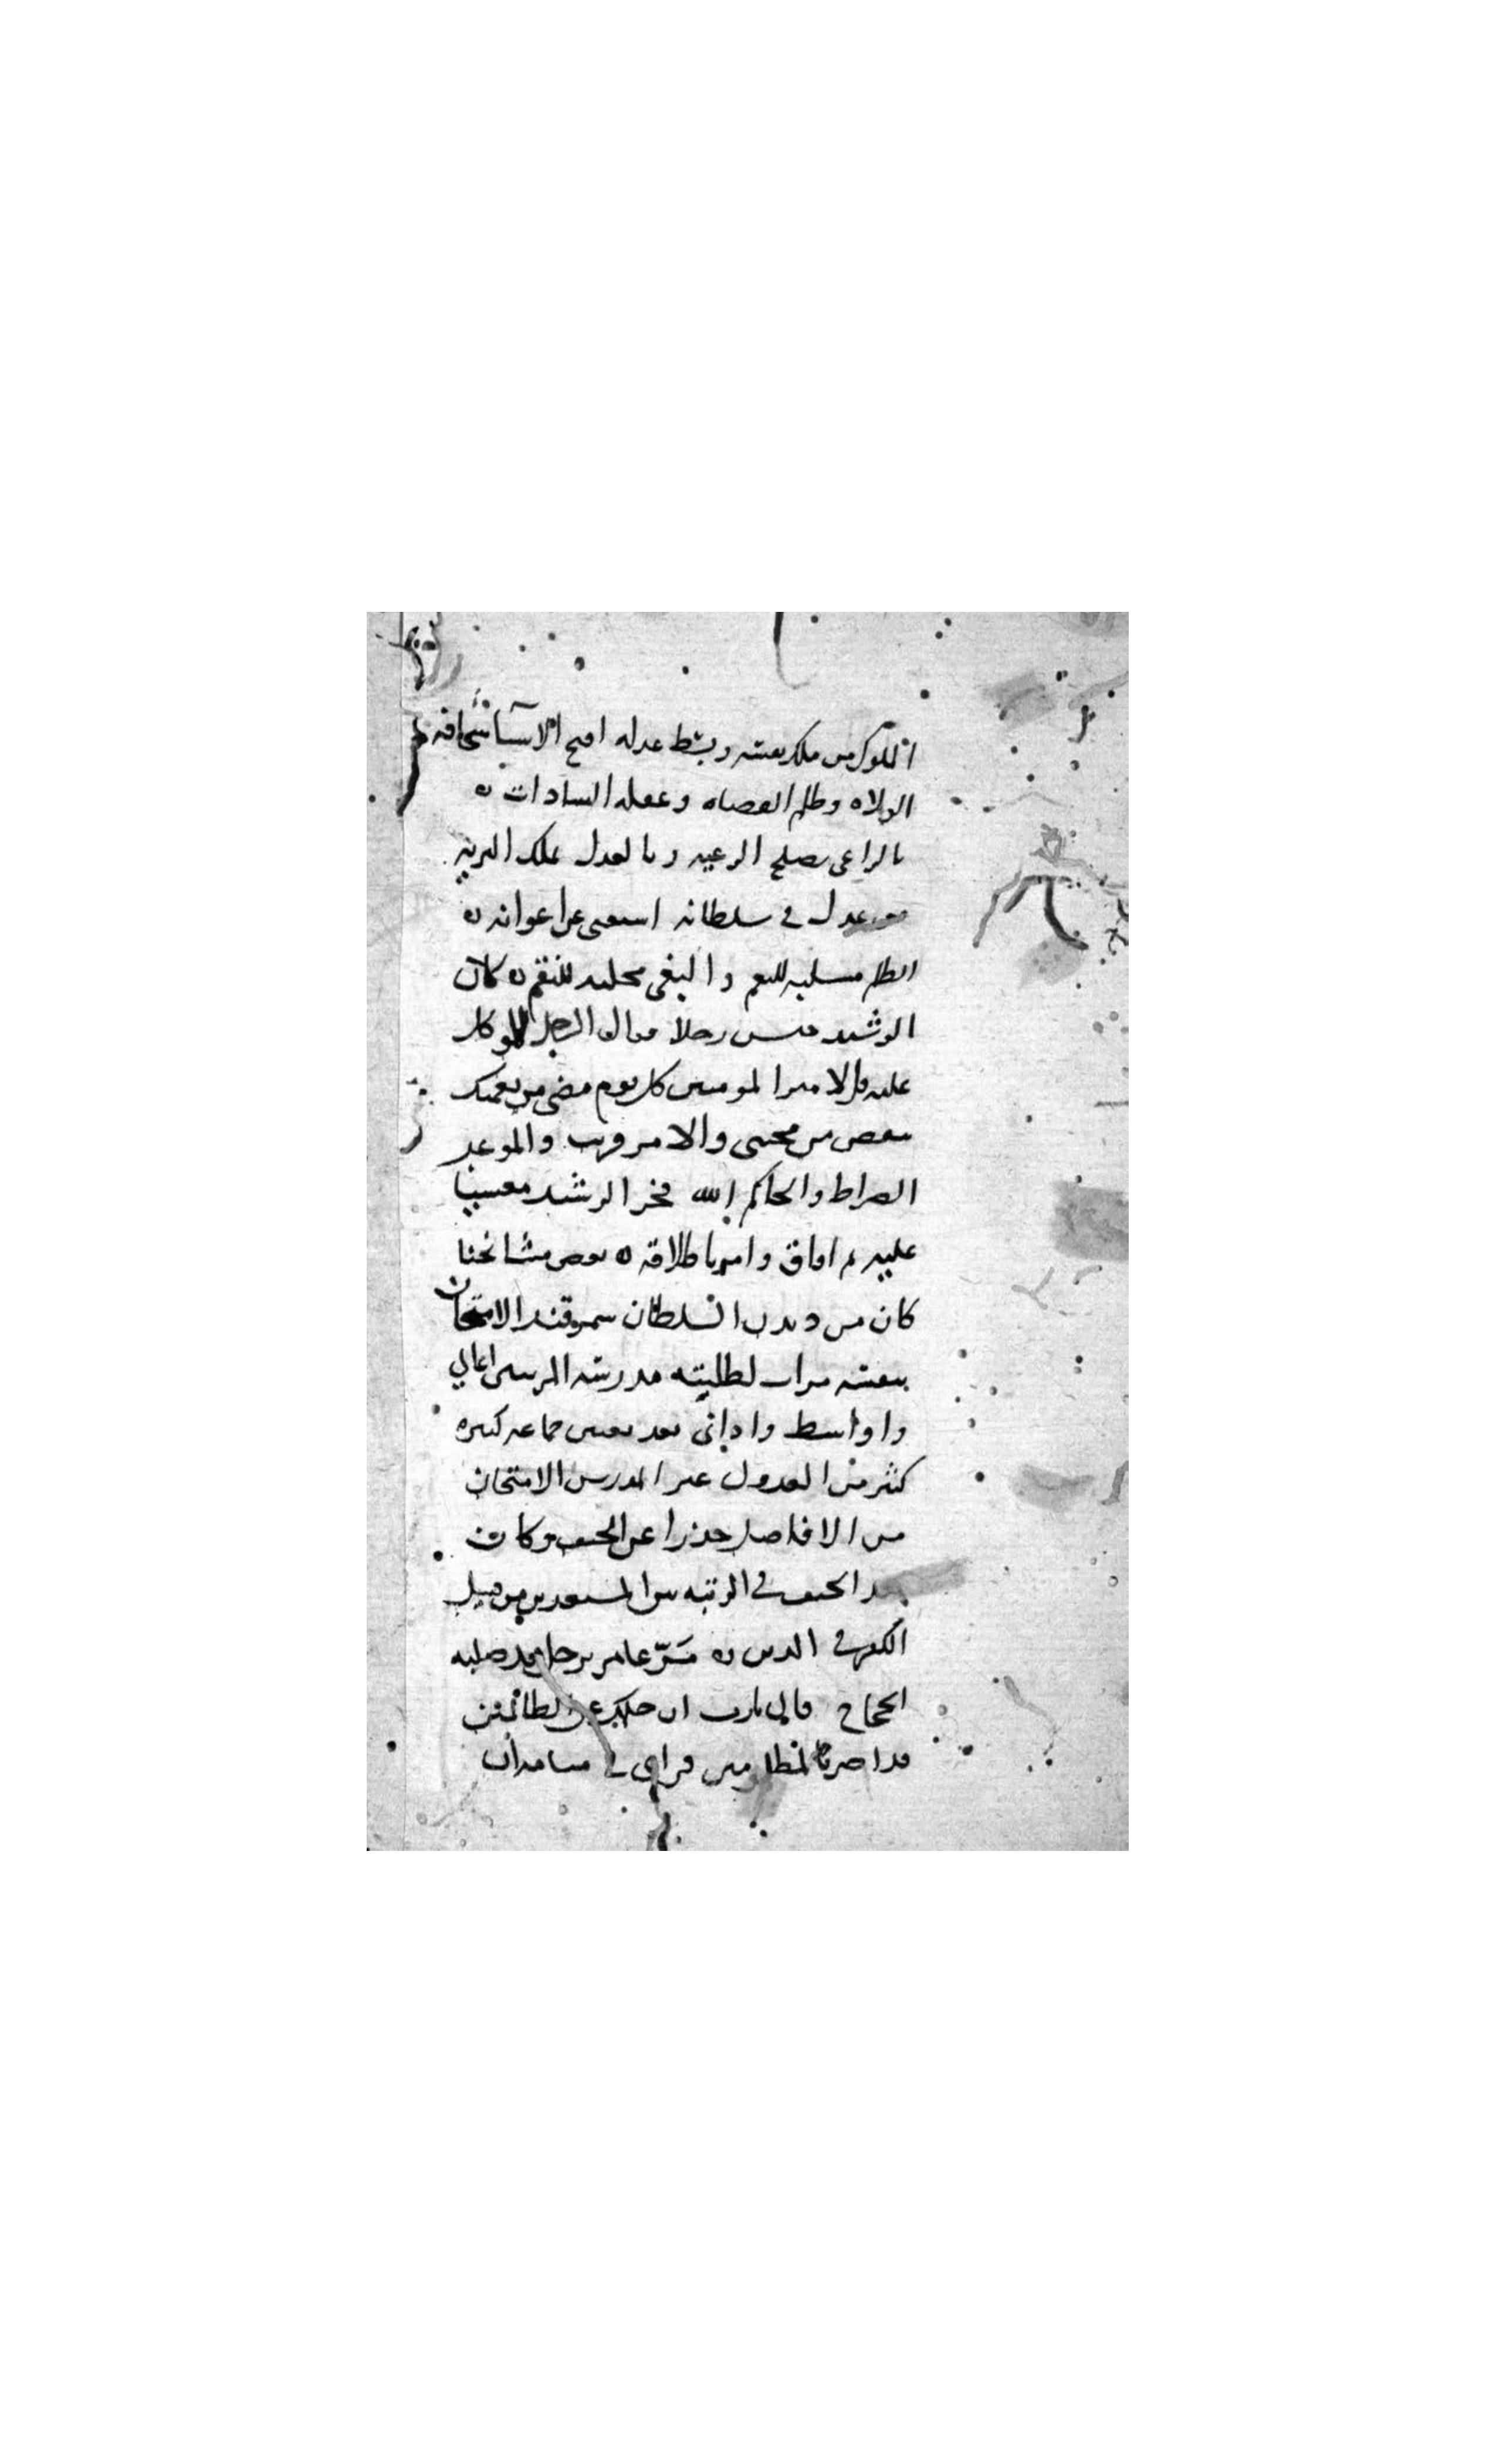 الملوك من ملك نفسه وبسط عدله اقبح الاشياء سخافه
الولاه وظلم القضاه وغفله السادات ه
بالراعى تصلح الرعيه وبالعدل تملك البريه
من عدل فى سلطانه استغنى عن اعوانه ه
الظلم مسلبه للنعم والبغى مجلبه للنقم ه كان
الرشيد حبس رجلا فقال الرجل للموكل
عليه قل لامير المومنين كل يوم مضى من نعمتك
ينقص من محنتى والامر قريب والموعد
الصراط والحاكم الله فخر الرشيد مغشيا
عليه ثم افاق وامر باطلاقه ه بعض مشائخنا
كان من السلطان سمرقند الامتحان
بنفسه مرات لطلبة مدرسته المرتبين اعالي
واواسط واداني بعد تعيين جماعه كثيره
كثر من العدول غير المدرس الامتحان
من الافاضل حذرا عن الحيف وكان
يعد الحيف فى الرتبه بين المستعدين من قبيل
الكفر فى الدين ه مر عامر برجل قد صلبه
الحجاج قال يارب ان حلمك عن الظالمين
قد اضر بالمظلومين فراى فى منامه ان